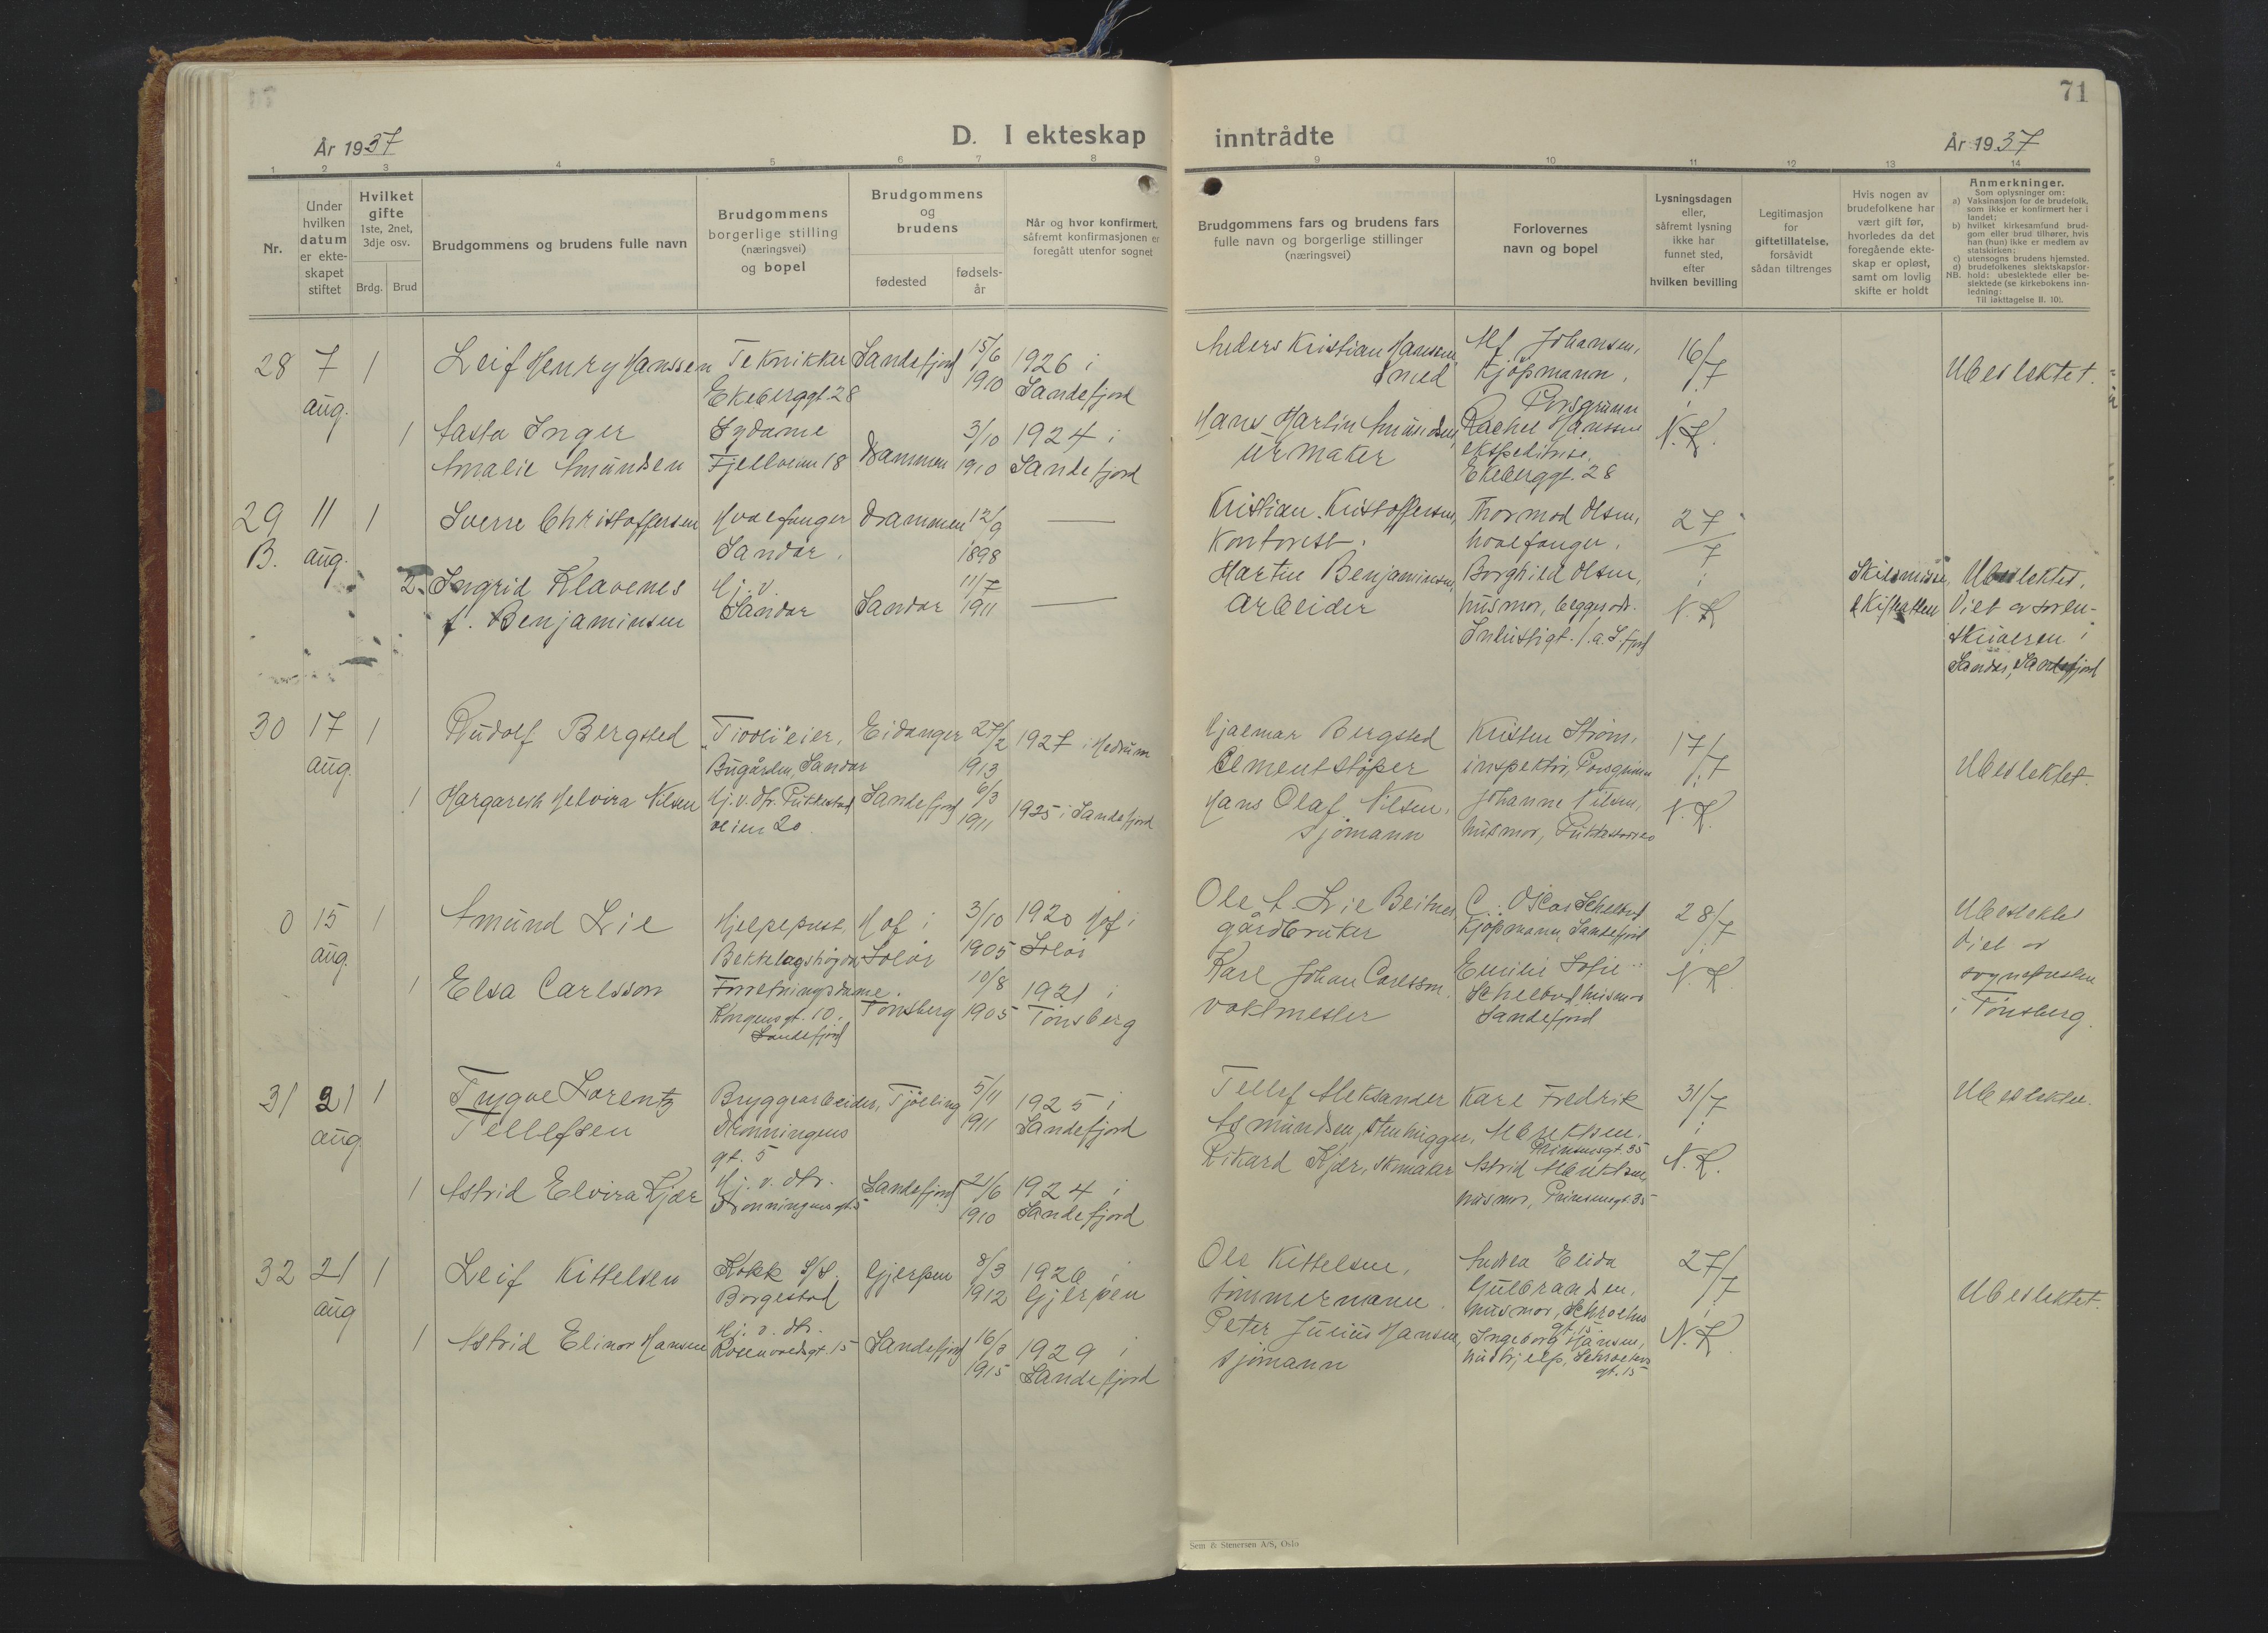 71
År 1937
D. I ekteskap inntrådte
År 1937
1 2 3 4 5 6 7 8 9 10 11 12 13 14
Nr.
Under
hvilken
datum
er ekte-
skapet
stiftet
Hvilket
gifte
1ste, 2net,
3dje osv.
Brdg. Brud
Brudgommens og brudens fulle navn
Brudgommens
borgerlige stilling
(næringsvei)
og bopel
Brudgommens
og
brudens
fødested
fødsels-
år
Når og hvor konfirmert,
såfremt konfirmasjonen er
foregått utenfor sognet
Brudgommens fars og brudens fars
fulle navn og borgerlige stillinger
(næringsvei)
Forlovernes
navn og bopel
Lysningsdagen
eller,
såfremt lysning
ikke har
funnet sted,
efter
hvilken bevilling
Legitimasjon
for
giftetillatelse,
forsåvidt
sådan tiltrenges
Hvis nogen av
brudefolkene har
vært gift før,
hvorledes da det
foregående ekte-
skap er opløst,
samt om lovlig
skifte er holdt
Anmerkninger.
Som oplysninger om:
a) Vaksinasjon for de brudefolk,
som ikke er konfirmert her i
landet;
b) hvilket kirkesamfund brud-
gom eller brud tilhører, hvis
han (hun) ikke er medlem av
statskirken;
c) utensogns brudens hjemsted.
d) brudefolkenes slektskapsfor-
NB. hold: ubeslektede eller be-
slektede (se kirkebokens inn-
ledning:
Til iakttagelse II. 10).
28 7 aug. 1
Leif Henry Hanssen
Teknikker
Ekeberggt. 28
Sandefjord
15/6
1910
1926 i
Sandefjord
Anders Kristian Hanssen
Smed
Alf Johansen,
Kjöpmann,
Porsgrunn
16/7
i
Ubeslektet.
1
Aasta Inger
Amalie Amundsen
Sydame
Fjellveien 18
Drammen
3/10
1910
1924 i
Sandefjord
Hans Martin Amundsen,
urmaker
Rachel Hanssen
ekspeditrise.
Ekeberggt. 28
N.K.
29 B. 11 aug. 1
Sverre Christoffersen
Hvalfanger
Sandar.
Drammen
12/9
1898
Kristian Kristoffersen,
Kontorist.
Thormod Olsen,
hvalfanger.
27/7
i
2.
Ingrid Klavenes
f. Benjaminsen
Hj. v.
Sandar
Sandar
11/7
1911
Martin Benjaminsen,
arbeider
Borghild Olsen,
husmor, begge adr.
N.K
Skilsmisse,
Ubeslektet.
Viet av soren-
skriveren i
Sandar, Sandefjord
30 17 aug. 1
Rudolf Bergsted
"Tivoli"eier,
Bugården, Sandar
Eidanger
27/2
1913
1927 i Hedrum
Hjalmar Bergsted
Cementstöper
Kristen Ström,
inspektör, Porsgrunn
17/7
i
Ubeslektet.
1
Margareth Helvira Nilsen
Hj. v. dtr. Pukkestad
veien 20.
Sandefjord
6/3
1911
1925 i Sandefjord
Hans Olaf Nilsen,
sjömann
Johanne Nilsen,
husmor,
N.K.
0 15 aug. 1
Amund Lie
Hjelpeprest,
Bekkelagshögda
Hof i
Solör
3/10
1905
1920 Hof i
Solör
Ole A. Lie Beitnes,
gårdbruker
C. Oscar
Kjöpmann, Sandefjord
28/7
i
Ubeslektet
Viet av
sognepresten
i Tönsberg.
1
Elsa Carlsson
Forretningsdame.
Kongensgt. 10.
Sandefjord
Tönsberg
10/8
1905
1921 i
Tönsberg
Karl Johan Carlsson,
vaktmester
Emilie Sofie
husmor
Sandefjord
N.K.
31 21 aug. 1
Trygve Lorentz
Tellefsen
Bryggearbeider,
Dronningens
gt. 5
Tjölling
5/11
1911
1925 i
Sandefjord
Tellef Aleksander
Asmundsen, stenhugger,
Karl Fredrik
Albrektsen,
Prinsensgt. 35
31/7
i
Ubeslektet.
1
Astrid Elvira Kjær
Hj. v. dtr.
Dronningensgt. 5
Sandefjord
21/6
1910
1924 i
Sandefjord
Rikard Kjær, skomaker
Astrid Albrektsen,
husmor, Prinsensgt. 35
N.K.
32 21 aug 1
Leif Kittelsen
Kokk S/S.
Borgestad
Gjerpen
8/3
1912
1926 i
Gjerpen
Ole Kittelsen,
tömmermann.
Andrea Elida
Gulbrandsen,
husmor, Schroeters
gt. 15.
27/7
i
Ubeslektet.
1
Astrid Elinor Hansen
Hj. v. dtr.
Rosenvoldsgt. 15
Sandefjord
16/3
1915
1929 i
Sandefjord
Peter Julius Hansen,
sjömann
Ingeborg Hansen,
hushjelp, Schroeters
gt. 15
N.K
Sem & Stenersen A/S, Oslo